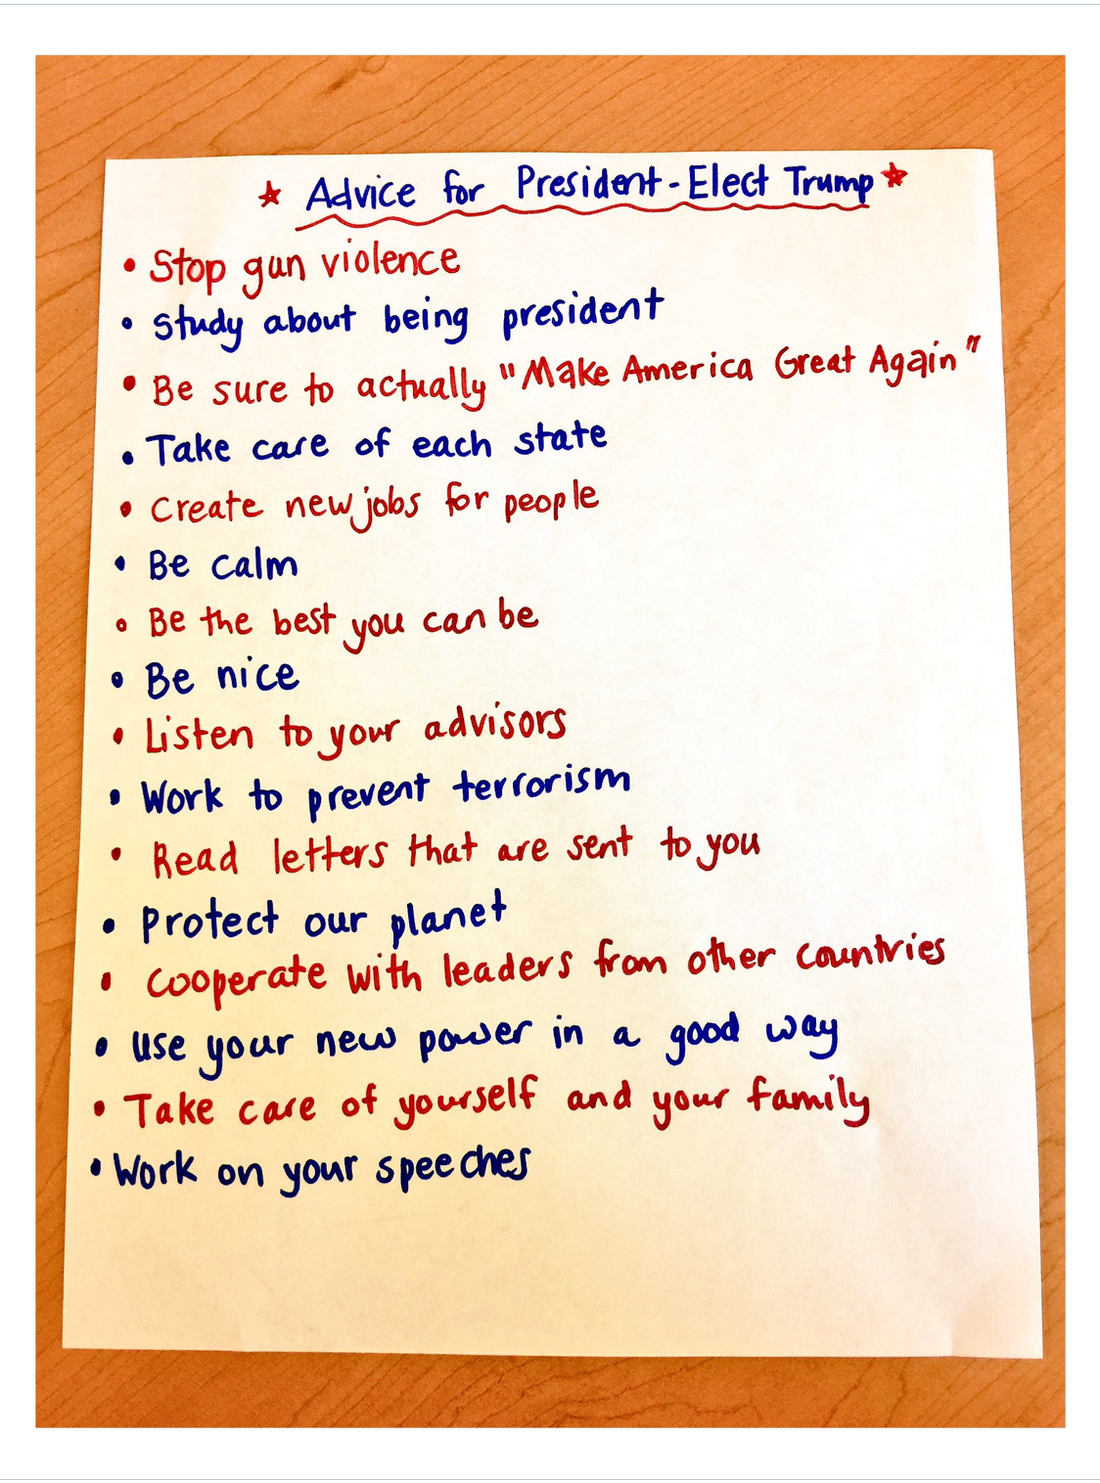 ★ Advice for President-Elect Trump ★
• Stop gun violence
• Study about being president
• Be sure to actually "Make America Great Again"
• Take care of each state
• Create new jobs for people
• Be calm
• Be the best you can be
• Be nice
• Listen to your advisors
• Work to prevent terrorism
• Read letters that are sent to you
• Protect our planet
• Cooperate with leaders from other countries
• Use your new power in a good way
• Take care of yourself and your family
• Work on your speeches